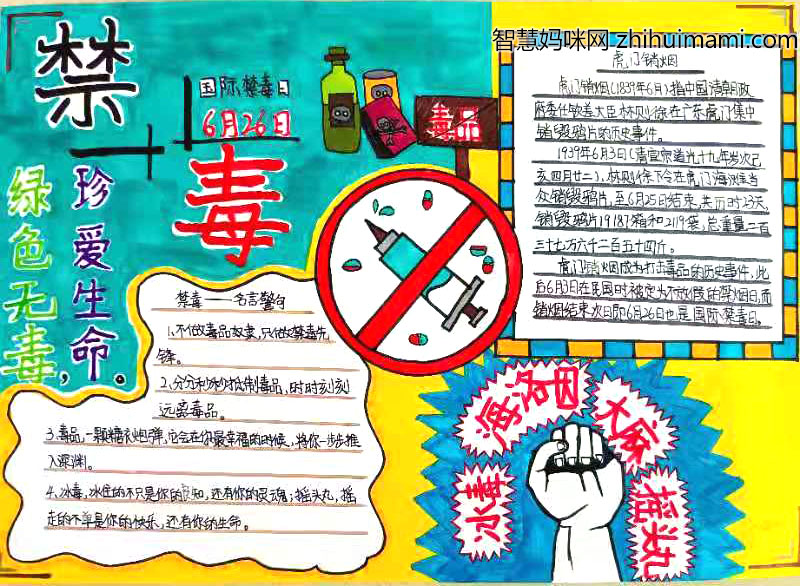 智慧妈咪网 zhihuimami.com
禁
国际禁毒日
6月26日
毒
毒品
珍爱生命。
绿色无毒，
虎门销烟
虎门销烟(1839年6月)指中国清朝政
府委任钦差大臣林则徐在广东虎门集中
销毁鸦片的历史事件。
1939年6月3日(清宣宗道光十九年岁次己
亥四月廿二)，林则徐下令在虎门海滩当
众销毁鸦片，至6月25日结束，共历时23天，
销毁鸦片19187箱和2119袋，总重量二百
三十七万六千二百五十四斤。
虎门销烟成为打击毒品的历史事件，此
后6月3日在民国时被定为不放假的禁烟日，而
销烟结束次日即6月26日也是国际禁毒日。
禁毒——名言警句
1、不做毒品奴隶，只做禁毒先
锋。
2、分分秒秒抵制毒品，时时刻刻
远离毒品。
3、毒品，一颗糖衣炮弹，它会在你最幸福的时候，将你一步步推
入深渊。
4、冰毒，冰住的不只是你的良知，还有你的灵魂；摇头丸，摇
走的不单是你的快乐，还有你的生命。
海洛因
大麻
冰毒
摇头丸